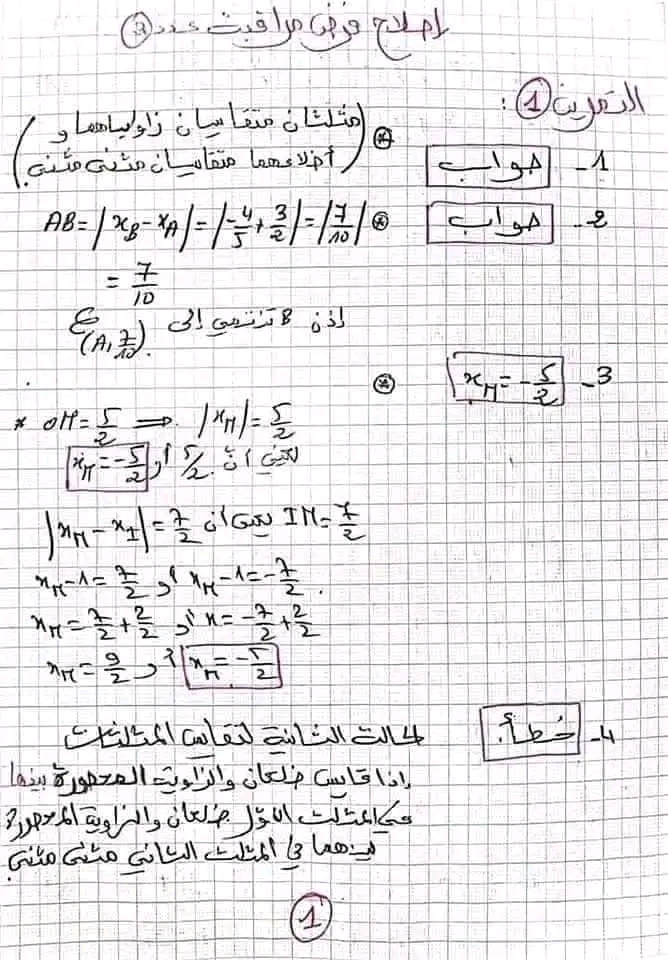 إصلاح فرض مراقبة عدد 2
التمرين 1 :
1- صواب * (مثلثان متقايسان زواياهما و
أضلاعهما متقايسان مثنى مثنى)
2- صواب * AB = |x_B - x_A| = |-4/5 + 3/2| = |7/10|
= 7/10
إذن B تنتمي إلى ℰ(A, 7/10).
3- x_M = -5/2 *
* OM = 5/2 ⟹ |x_M| = 5/2
يعني أن 5/2 أو x_M = -5/2
IM = 7/2 يعني أن |x_M - x_I| = 7/2
x_M - 1 = 7/2 أو x_M - 1 = -7/2.
x_M = 7/2 + 2/2 أو x = -7/2 + 2/2
x_M = 9/2 أو x_M = -5/2
4- خطأ. الحالة الثانية لتقايس المثلثات
إذا قايس ضلعان والزاوية المحصورة بينهما
في المثلث الأول ضلعان والزاوية المحصورة
بينهما في المثلث الثاني مثنى مثنى
1